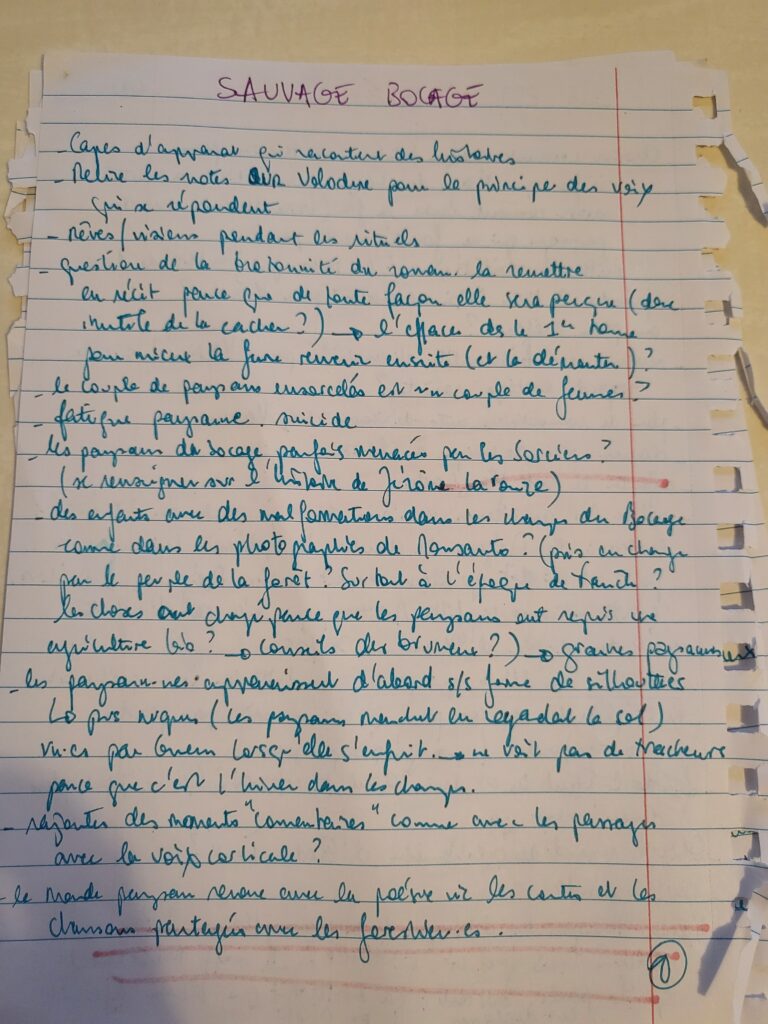 SAUVAGE BOCAGE
- Capes d'apparat qui racontent des histoires
- Relire les notes sur Volodine pour le principe des voix
qui se répondent
- rêves/visions pendant les rituels
- question de la bretonnité du roman. la remettre
en récit parce que de toute façon elle sera perçue (donc
inutile de la cacher ?) → l'effacer dès le 1er tome
pour mieux la faire revenir ensuite (et la démonter) ?
- le couple de paysans ensorcelés est un couple de femmes ?
- fatigue paysanne. suicide
- les paysans du bocage parfois menacés par les Sorciers ?
(se renseigner sur l'histoire de Jérôme Laronze)
- des enfants avec des malformations dans les champs du Bocage
comme dans les photographies de Monsanto ? (pris en charge
par le peuple de la forêt ? Surtout à l'époque de
les choses ont changé parce que les paysans ont repris une
agriculture bio ? → conseils des ?) → graines paysannes
- les paysan·nes apparaissent d'abord s/s forme de silhouettes
↳ puis nuques (les paysans marchent en regardant le sol)
vu·es par lorsqu'elle s'enfuit. → ne voit pas de tracteurs
parce que c'est l'hiver dans les champs.
- rajouter des moments "comentaires" comme avec les passages
avec la voix corticale ?
- le monde paysan renoue avec la poésie via les contes et les
chansons partagés avec les forestier·es.